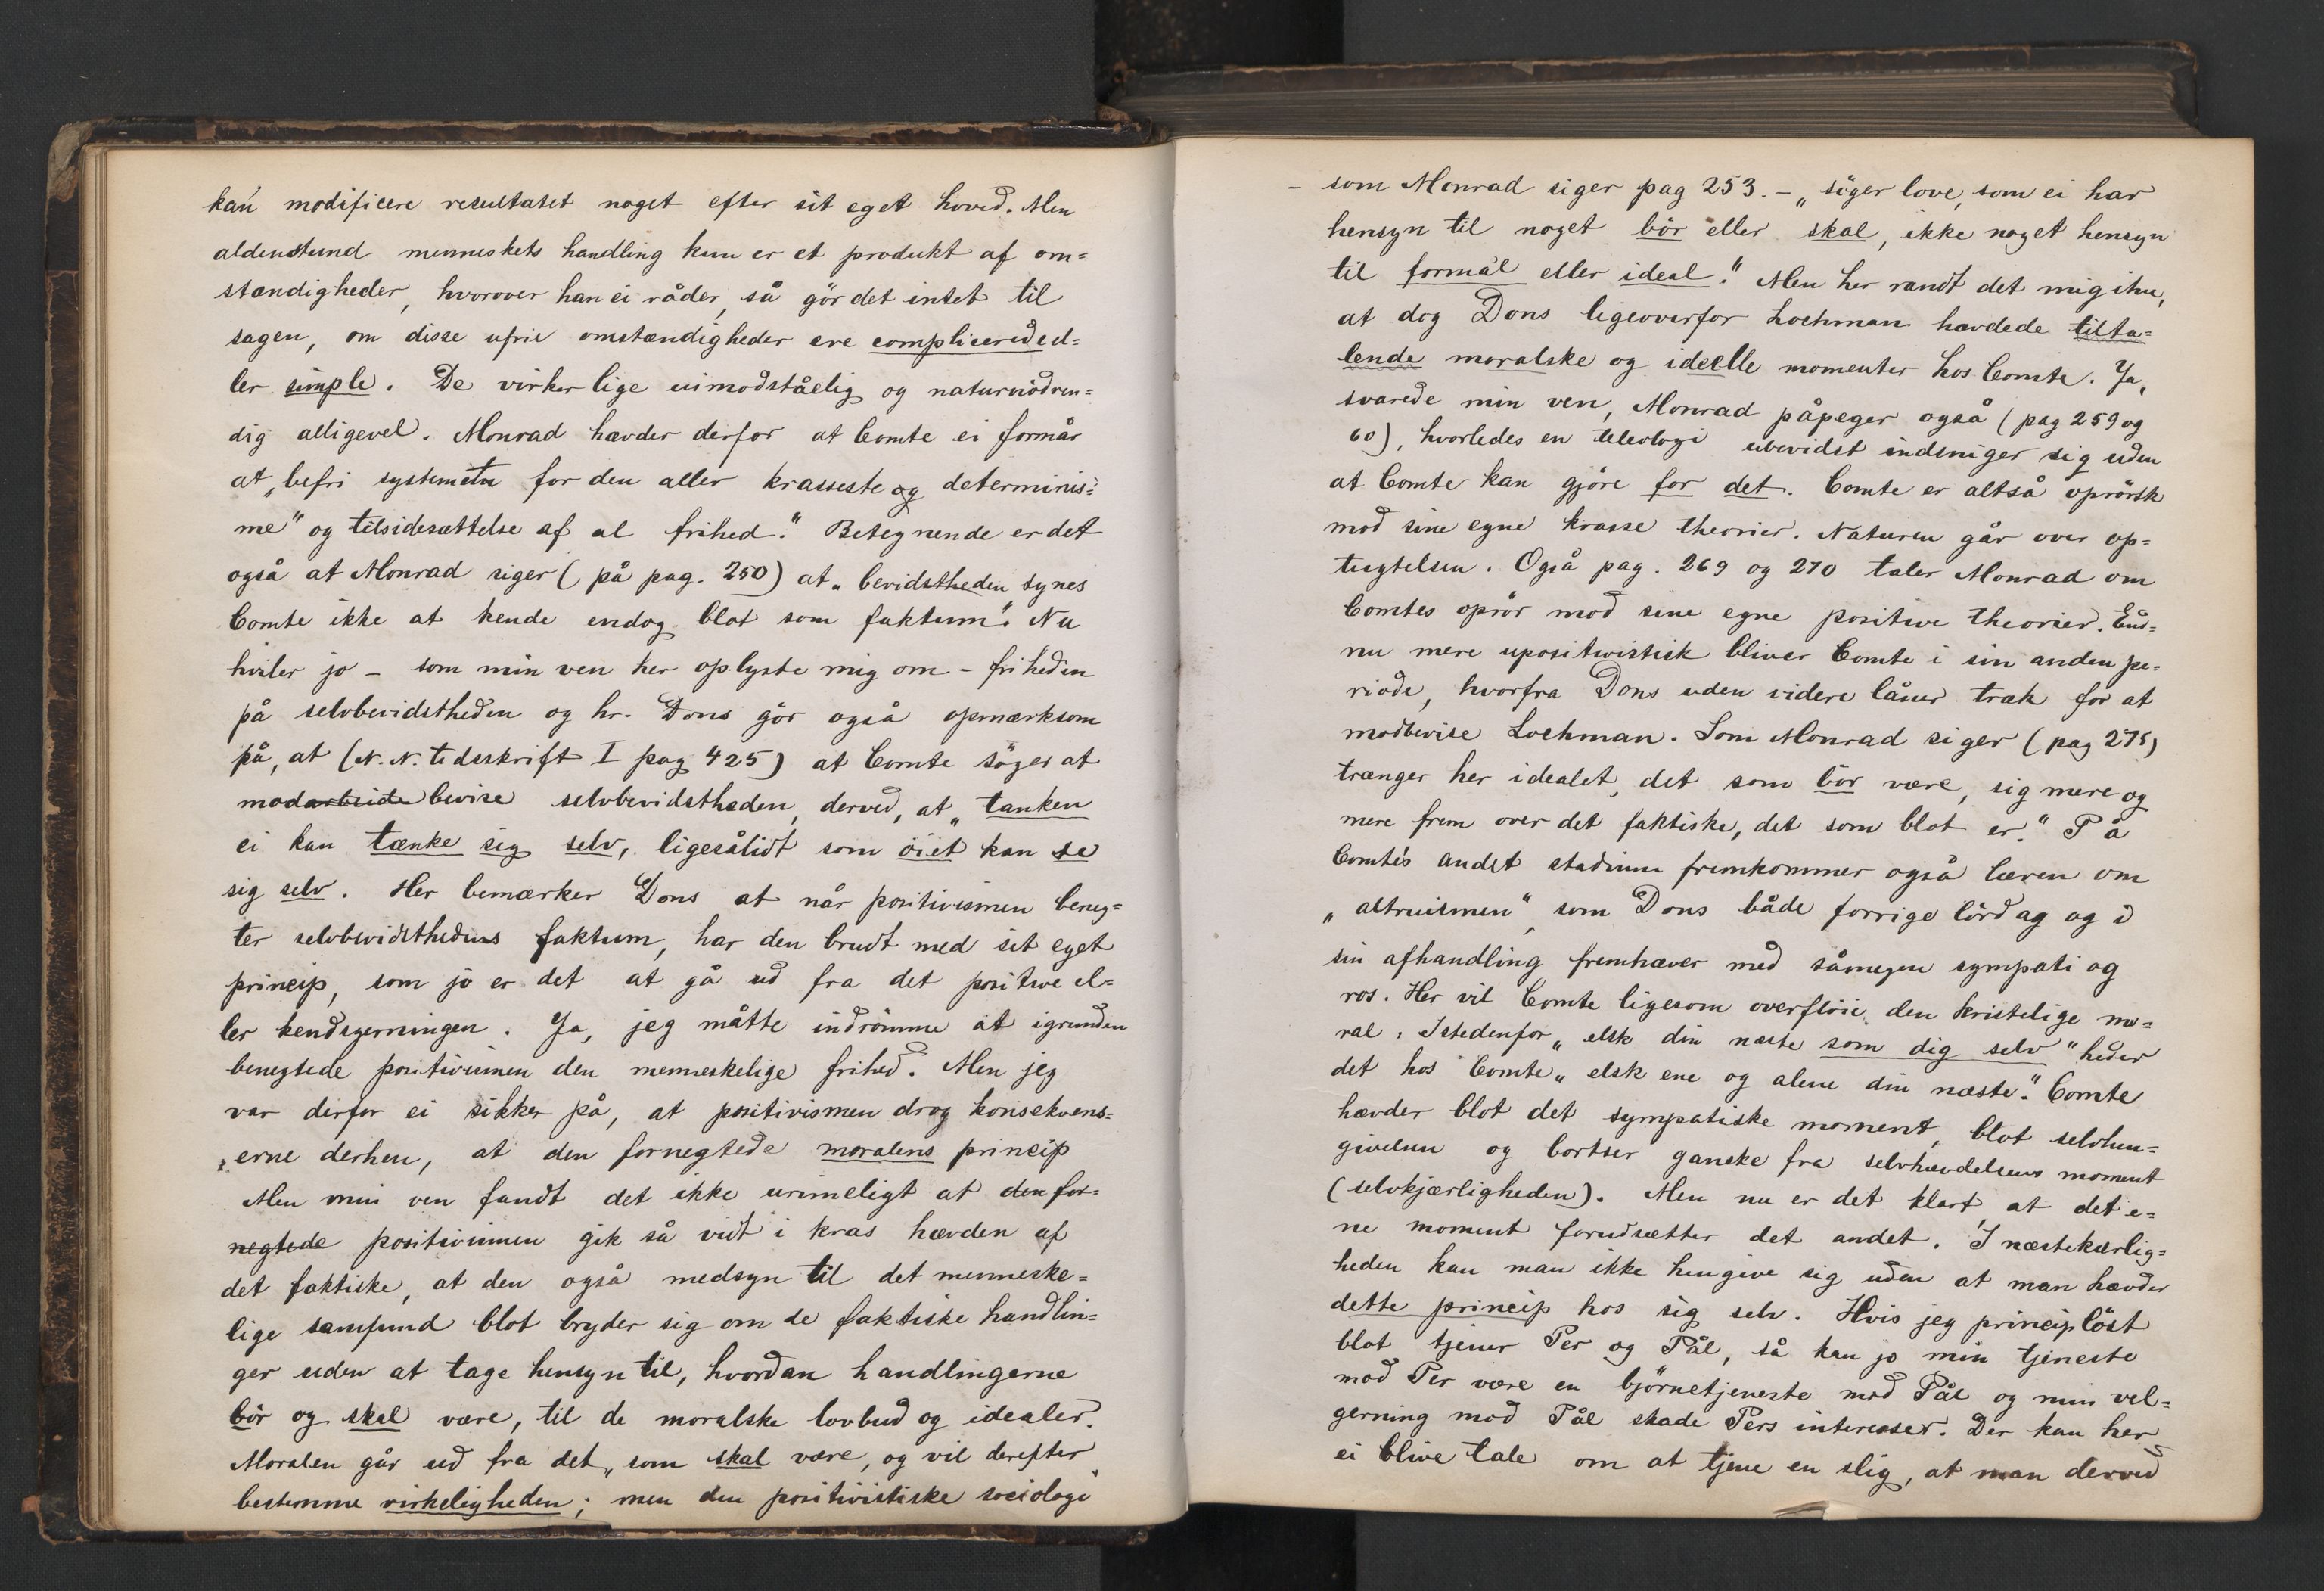 kan modificere resultatet noget efter sit eget hoved. Men
aldenstund menneskets handling kun er et produkt af om=
stændigheder, hvorover han ei råder, så gör det intet til
sagen, om disse ufrie omstændigheder ere complicerede el=
ler simple. De virker lige uimodståelig og naturnödven=
dig alligevel. Monrad hævder derfor at Comte ei formår
at „befri systemetn for den aller krasseste og determinis=
me" og tilsidesættelse af al frihed." Betegnende er det
også at Monrad siger (på pag. 250) at „bevidstheden synes
Comte ikke at kende endog blot som faktum". Nu
hviler jo – som min ven her oplyste mig om – friheden
på selvbevidstheden og hr. Dons gör også opmærksom
på, at (N. N. Tidsskrift I pag 425) at Comte söger at
modarbeide bevise selvbevidstheden, derved, at „tanken
ei kan tænke sig selv, ligesålidt som öiet kan se
sig selv. Her bemærker Dons at når positivismen beneg=
ter selvbevidsthedens faktum, har den brudt med sit eget
princip, som jo er det at gå ud fra det positive el=
ler kendsgerningen. Ja, jeg måtte indrömme at igrunden
benegtede positivismen den menneskelige frihed. Men jeg
var derfor ei sikker på, at positivismen drog konsekvens=
erne derhen, at den fornegtede moralens princip
Men min ven fandt det ikke urimeligt at den for=
negtede positivismen gik så vidt i kras hævden af
det faktiske, at den også medsyn til det menneske=
lige samfund blot bryder sig om de faktiske handlin=
ger uden at tage hensyn til, hvordan handlingerne
bör og skal være, til de moralske lovbud og idealer.
Moralen går ud fra det „som skal være, og vil derefter
bestemme virkeligheden; men den positivistiske sociologi"
– som Monrad siger pag 253. – „söger love, som ei har
hensyn til noget bör eller skal, ikke noget hensyn
til formål eller ideal." Men her randt det mig ihu,
at dog Dons ligeoverfor Lochman hævdede tilta=
lende moralske og ideelle momenter hos Comte. Ja,
svarede min ven, Monrad påpeger også (pag 259 og
60), hvorledes en teleologi ubevidst indsniger sig uden
at Comte kan gjöre for det. Comte er altså oprörsk
mod sine egne krasse theorier. Naturen går over op=
tugtelsen. Også pag. 269 og 270 taler Monrad om
Comtes oprör mod sine egne positive theorier. End=
nu mere upositivistisk bliver Comte i sin anden pe=
riode, hvorfra Dons uden videre låner træk for at
modbevise Lochman. Som Monrad siger (pag 275)
trænger her idealet, det som bör være, sig mere og
mere frem over det faktiske, det som blot er." På
Comtes andet stadium fremkommer også læren om
„altruismen", som Dons både forrige lördag og i
sin afhandling fremhæver med såmegen sympati og
ros. Her vil Comte ligesom overflöie den kristelige mo=
ral. Istedenfor „elsk din næste som dig selv" heder
det hos Comte „elsk ene og alene din næste." Comte
hævder blot det sympatiske moment, blot selvhen=
givelsen og bortser ganske fra selvhævdelsens moment
(selvkjærligheden). Men nu er det klart, at det e=
ne moment forudsætter det andet. I næstekærlig=
heden kan man ikke hengive sig uden at man hævder
dette princip hos sig selv. Hvis jeg principlöst
blot tjener Per og Pål, så kan jo min tjeneste
mod Per være en björnetjeneste mod Pål og min vel=
gerning mod Pål skade Pers interesser. Der kan her
ei blive tale om at tjene en slig, at man derved